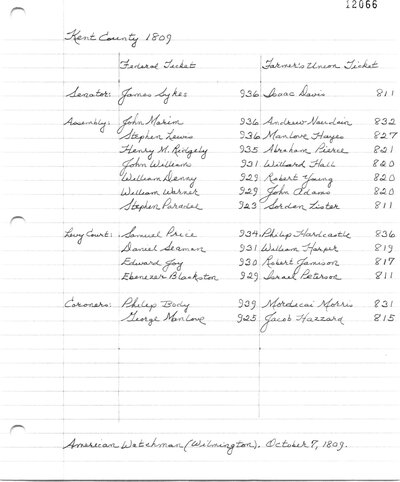 12066
Kent County 1809
Federal Ticket Farmer's Union Ticket
Senator: James Sykes 936 Isaac Davis 811
Assembly: John Marim 936 Andrew Naudain 832
Stephen Lewis 936 Manlove Hayes 827
Henry M. Ridgely 935 Abraham Pierce 821
John Williams 931 Willard Hall 820
William Denny 929 Robert Young 820
William Warner 929 John Adams 820
Stephen Paradee 923 Gordon Lister 811
Levy Court: Samuel Price 934 Philip Hardcastle 836
Daniel Seaman 931 William Harper 819
Edward Joy 930 Robert Jamison 817
Ebenezer Blackston 929 Israel Peterson 811
Coroners: Philip Body 939 Mordecai Morris 831
George Manlove 925 Jacob Hazzard 815
American Watchman (Wilmington). October 7, 1809.